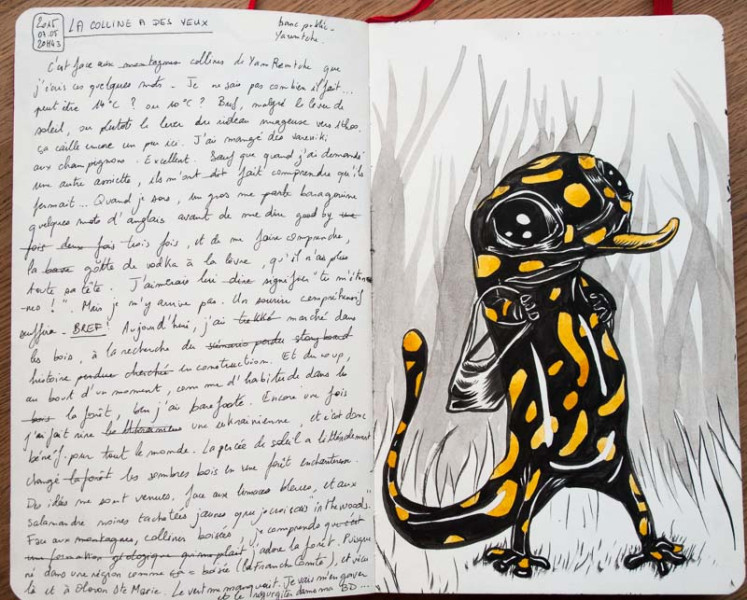 2015
09.05
20H43
LA COLLINE A DES YEUX
banc public -
Yaremtche.
C'est face aux montagnes collines de Yam Remtche que
j'écris ces quelques mots - Je ne sais pas combien il fait...
peut être 14°C ? ou 10°C ? Bref, malgré le lever de
soleil, ou plutôt le lever du rideau nuageuse vers 17h00,
ça caille encore un peu ici. J'ai mangé des vareniki
aux champignons. Excellent. Sauf que quand j'ai demandé
une autre assiette, ils m'ont dit fait comprendre qu'ils
fermait... Quand je sors, un gros me parle baragouine
quelques mots d'anglais avant de me dire good by une
fois deux fois trois fois, et de me faire comprendre,
la goutte de vodka à la lèvre, qu'il n'a plus
toute sa tête. J'aimerais lui dire signifier "tu m'étonnes
!". Mais je m'y arrive pas. Un sourire compréhensif
suffira - BREF ! Aujourd'hui, j'ai trekké marché dans
les bois, à la recherche du scénario perdu story board
histoire perdue cherché en construction. Et du coup,
au bout d'un moment, comme d'habitude dans les
bois la forêt, ben j'ai
Encore une fois
j'ai fait rire une ukrainienne, et c'est donc
bénéf. pour tout le monde. La percée de soleil a littéralement
changé la forêt les sombres bois en une forêt enchanteresse.
Des idées me sont venues, face aux limaces bleues, et aux
salamandre noires tachetées jaunes que je croisais "in the woods".
Face aux montagnes, collines boisées, je comprends que c'est
une formation géologique qui me plait, j'adore la forêt. Puisque
né dans une région comme boisée (la Franche Comté), et vécu
là et à Oloron Ste Marie. Le vert me manquait. Je vais m'en gaver
et le régurgiter dans ma BD...